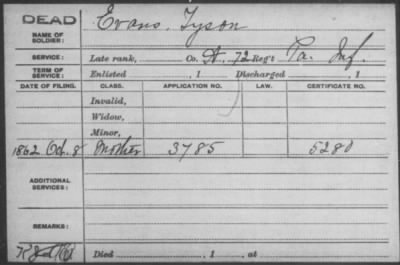 DEAD
NAME OF SOLDIER: Evans, Tyson
SERVICE: Late rank, Co. A, 72 Reg't Pa. Inf.
TERM OF SERVICE: Enlisted , 1 Discharged , 1
DATE OF FILING. CLASS. APPLICATION NO. LAW. CERTIFICATE NO.
Invalid,
Widow,
Minor,
1862 Oct. 8 Mother 3785 5280
ADDITIONAL SERVICES:
REMARKS:
Died , 1 , at